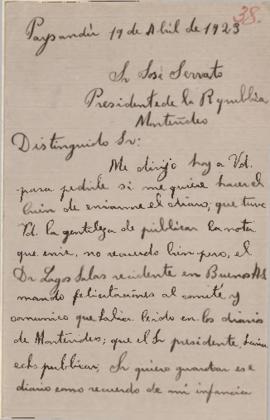 38.
Paysandú 19 de Abril de 1923
Sr José Serrato
Presidente de la Republica
Montevideo
Distinguido Sr:
Me dirijo hoy a Vd.
para pedirle si me quiere hacer el
bien de enviarme el diario; que tuvo
Vd. la gentileza de publicar la nota
que envie, no recuerdo bien pero, el
Dr Lagos Salas recidente en Buenos As
mando felicitaciones al comité y
comunico que habia leido en los diarios
de Montevideo; que el Sr presidente, havia
echo publicar; Sr quiero guardar ese
diario como recuerdo de mi infancia